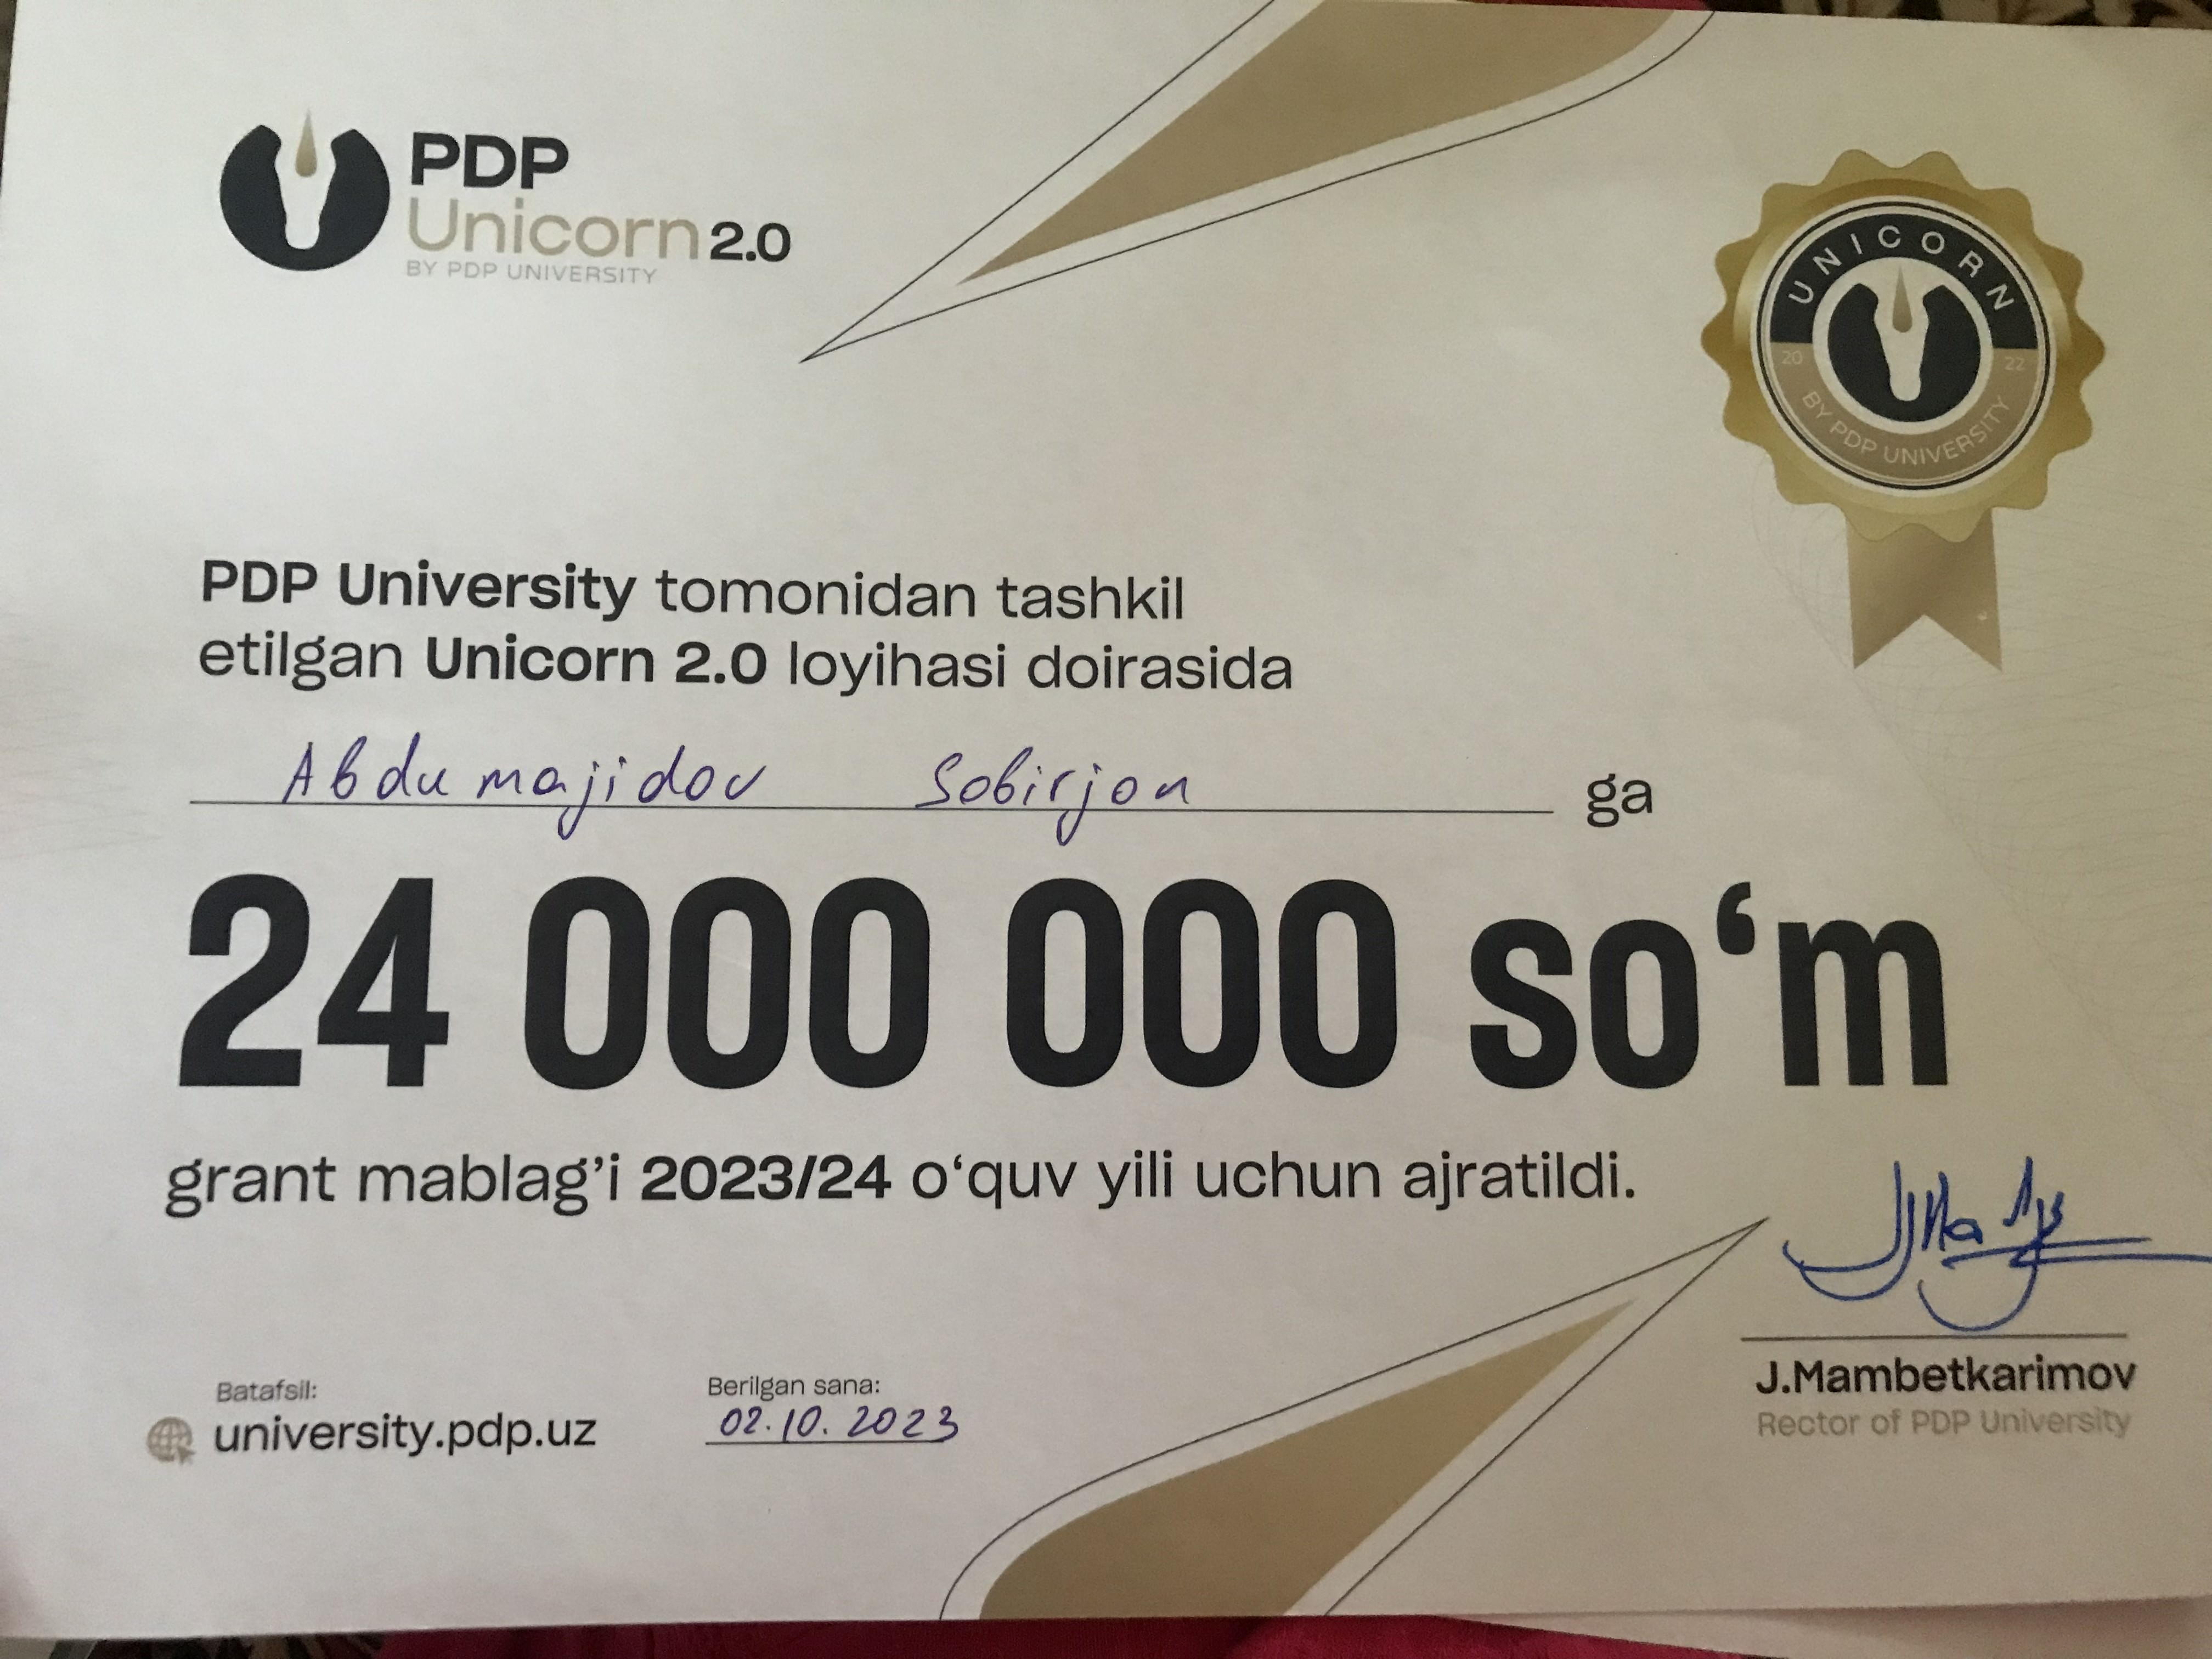 PDP
Unicorn 2.0
BY PDP UNIVERSITY
UNICORN
20 22
BY PDP UNIVERSITY
PDP University tomonidan tashkil
etilgan Unicorn 2.0 loyihasi doirasida
Abdumajidov Sobirjon ga
24 000 000 so‘m
grant mablag’i 2023/24 o‘quv yili uchun ajratildi.
Batafsil:
university.pdp.uz
Berilgan sana:
02.10.2023
J.Mambetkarimov
Rector of PDP University